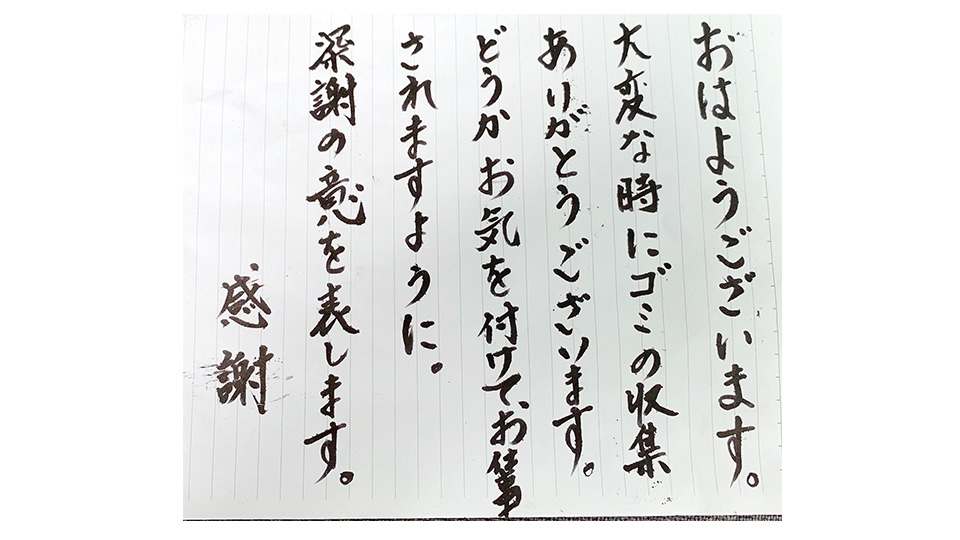 おはようございます。
大変な時にゴミの収集
ありがとうございます。
どうかお気を付けて、お仕事
されますように。
深謝の意を表します。
感謝